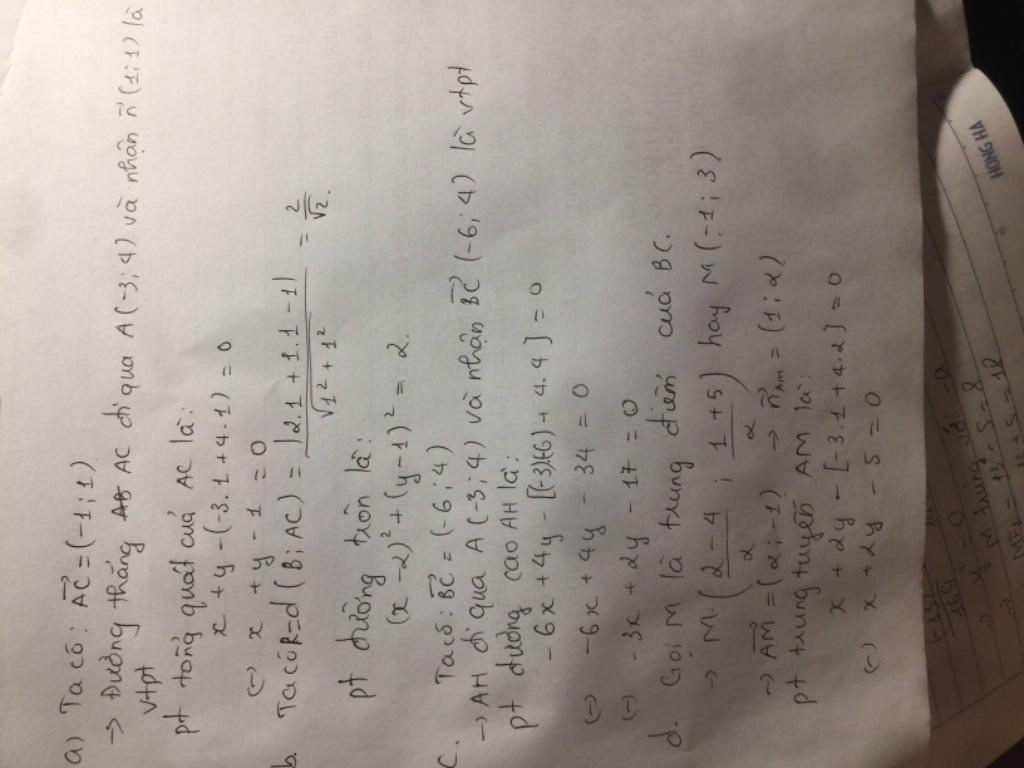 a) Ta có: AC→ = (-1; 1)
→ Đường thẳng AC đi qua A(-3; 4) và nhận n→(1; 1) là
vtpt
pt tổng quát cuả AC là:
x + y - (-3.1 + 4.1) = 0
(-) x + y - 1 = 0
b. Ta có R = d(B; AC) = |2.1 + 1.1 - 1| / √(1² + 1²) = 2/√2.
pt đường tròn là:
(x - 2)² + (y - 1)² = 2.
c. Ta có: BC→ = (-6; 4)
→ AH đi qua A(-3; 4) và nhận BC→(-6; 4) là vtpt
pt đường cao AH là:
-6x + 4y - [(-3)(6) + 4.4] = 0
(-) -6x + 4y - 34 = 0
(-) -3x + 2y - 17 = 0
d. Gọi M là trung điểm cuả BC.
→ M((2 - 4)/2; (1 + 5)/2) hay M(-1; 3)
→ AM→ = (2; -1) → n→AM = (1; 2)
pt trung tuyến AM là:
x + 2y - [-3.1 + 4.2] = 0
(-) x + 2y - 5 = 0
HONG HA